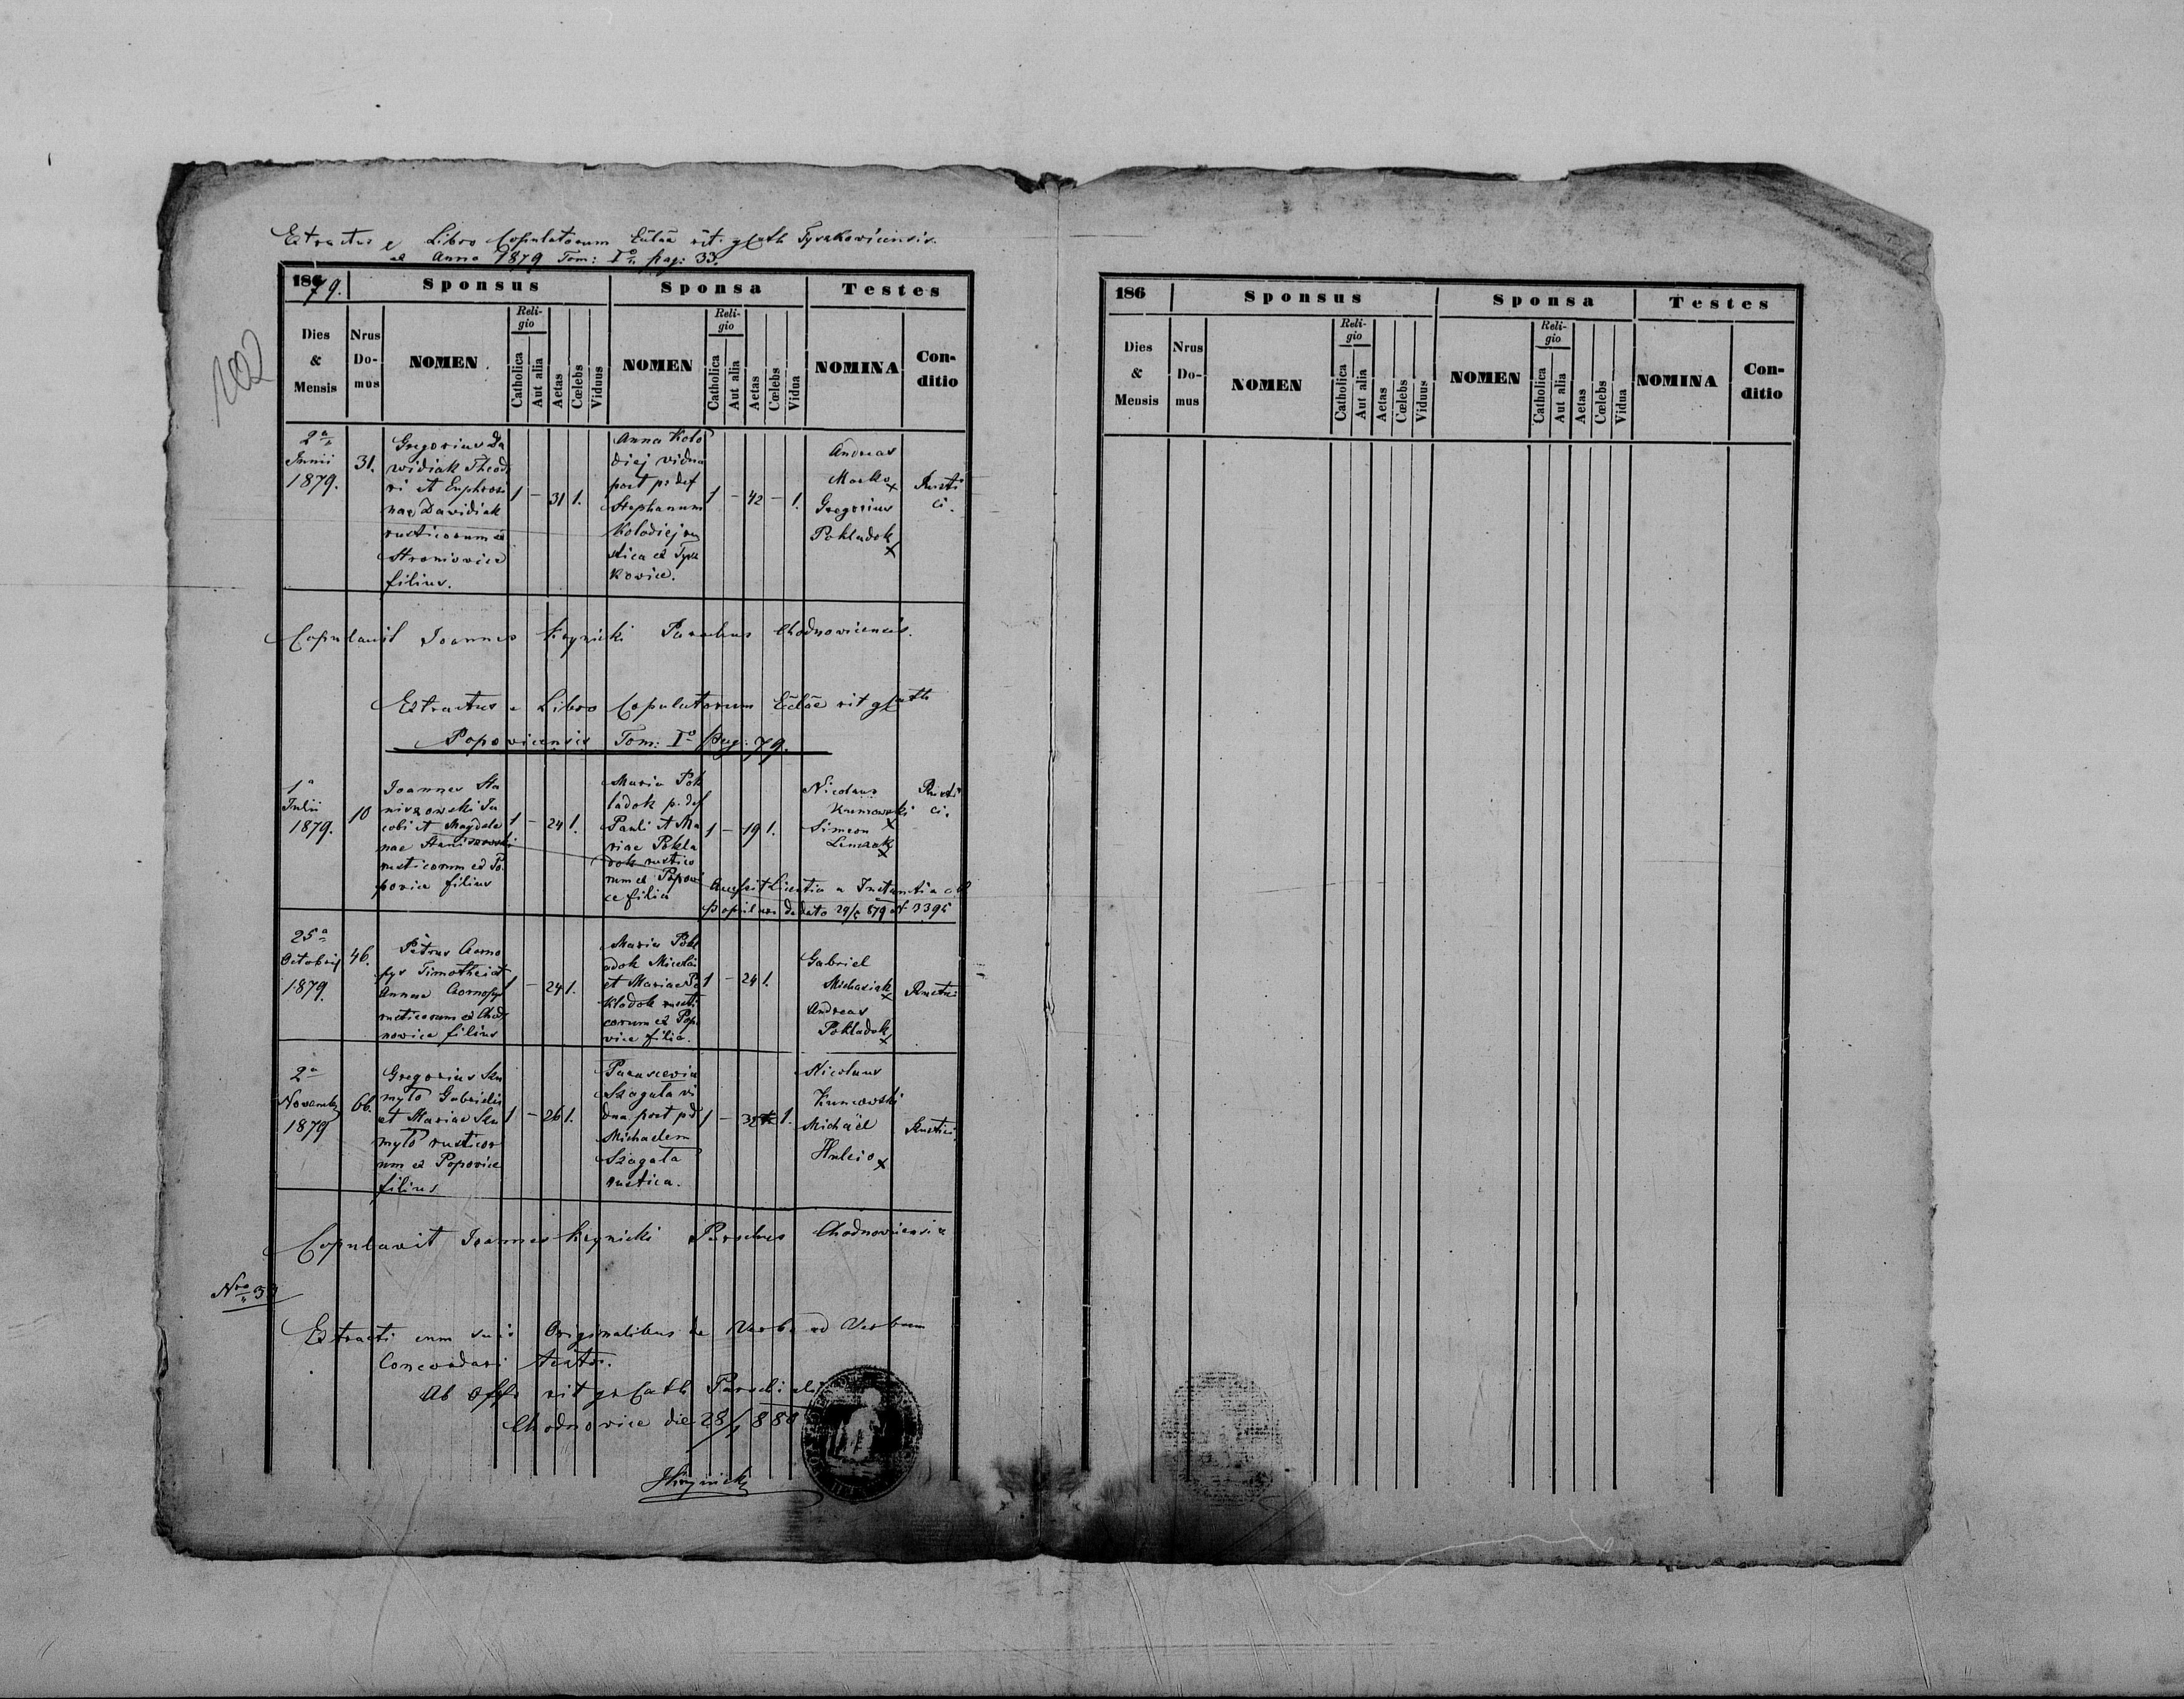 Extractus e Libro Copulatorum Eccläe rit. gr Cath Tyszkovicensis.
ex Anno 1879 Tom: I° pag: 33.
202
1879.
Sponsus
Sponsa
Testes
Dies & Mensis
Nrus Do-mus
NOMEN
Reli-gio
Catholica
Aut alia
Aetas
Cœlebs
Viduus
NOMEN
Reli-gio
Catholica
Aut alia
Aetas
Cœlebs
Vidua
NOMINA
Con-ditio
2a
Junii
1879.
31.
Gregorius Da
widiak Theod
ri et Euphrosi
nae Dawidiak
rusticorum ex
Stroniovice
filius.
1 – 31 1.
Anna Kolo
diej vidua
post p. def
Stephanum
Kolodiej ru
stica ex Tysz
kovice.
1 – 42 – 1.
Andreas
Macko x
Gregorius
Pokladok x
Rusti
ci.
Copulavit Joannes Krynicki Parochus Chodnovicensis.
Extractus e Libro Copulatorum Eccläe rit gr Cath
Popovicensis Tom: I° Pag: 79.
1a
Julii
1879.
10
Joannes Sta
niszowski Ja
cobi et Magdale
nae Staniszowski
rusticorum ex Po
povice filius
1 – 24 1.
Maria Pok
ladok p. def
Pauli et Ma
riae Pokla
dok rustico
rum ex Popovi
ce filia
1 – 19 1.
Nicolaus
x
Simeon
x
Rusti
ci.
Accessit Licentia a Instantia
dedato 29/5 879 3395
25a
Octobris
1879.
46.
Petrus Czorno
pys Timothei et
Annae Czornopys
rusticorum ex Chod
novice filius
1 – 24 1.
Maria Pokl
adok Nicolai
et Mariae Po
kladok rusti
corum ex Popo
vice filia.
1 – 24 1.
Gabriel
Michasiak x
Andreas
Pokladok x
Rustici
2a
Novembr
1879
66.
Gregorius Sku
mylo Gabrielis
et Mariae Sku
mylo rusticor
um ex Popovice
filius
1 – 26 1.
Parascevia
Szagata vi
dua post p d
Michaelem
Szagata
rustica.
1 – 32 1.
Nicolaus
Kuncowski
Michaël
x
Rustici.
Copulavit Joannes Krynicki Parochus Chodnovicensis
Nro 33
Extracti cum suis Originalibus de Verbo ad Verbum
Concordari testor.
Ab Offo rit gr Cath Parochiali
Chodnovice die 28/1 880
JKrynicki
186
Sponsus
Sponsa
Testes
Dies & Mensis
Nrus Do-mus
NOMEN
Reli-gio
Catholica
Aut alia
Aetas
Cœlebs
Viduus
NOMEN
Reli-gio
Catholica
Aut alia
Aetas
Cœlebs
Vidua
NOMINA
Con-ditio